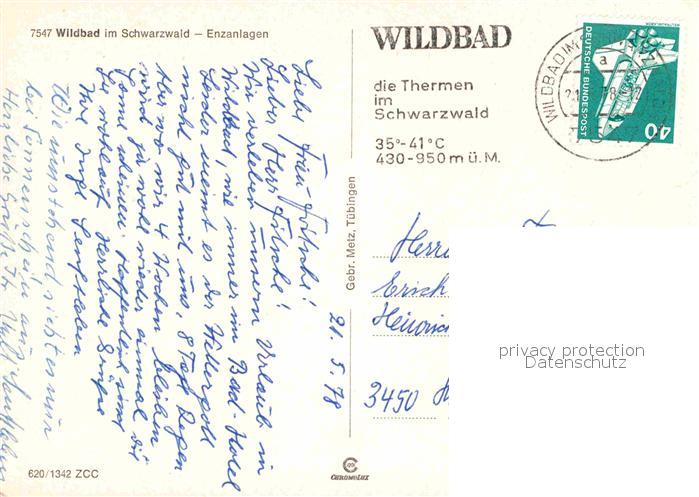 7547 Wildbad im Schwarzwald – Enzanlagen
WILDBAD
die Thermen
im
Schwarzwald
35°-41°C
430-950 m ü. M.
WILDBAD IM
a
DEUTSCHE BUNDESPOST
40
21.5.78
Liebe Frau
Lieber Herr
Wir verleben unseren Urlaub in
Wildbad, wie immer im Bad-Hotel
Leider meint es der Wettergott
nicht gut mit uns, 8 Tage Regen
Aber wo wir 4 Wochen bleiben
wird ja wohl wieder einmal die
Sonne scheinen. Hoffentlich sind
Sie wohlauf. Herzliche Grüße
Ihre Inge
Wie umstehend sieht es nur
bei Sonnenschein aus
Herzliche Grüße
Gebr. Metz, Tübingen
Herrn
Erich
Heinrich
3450
privacy protection
Datenschutz
620/1342 ZCC
CHROMOLUX